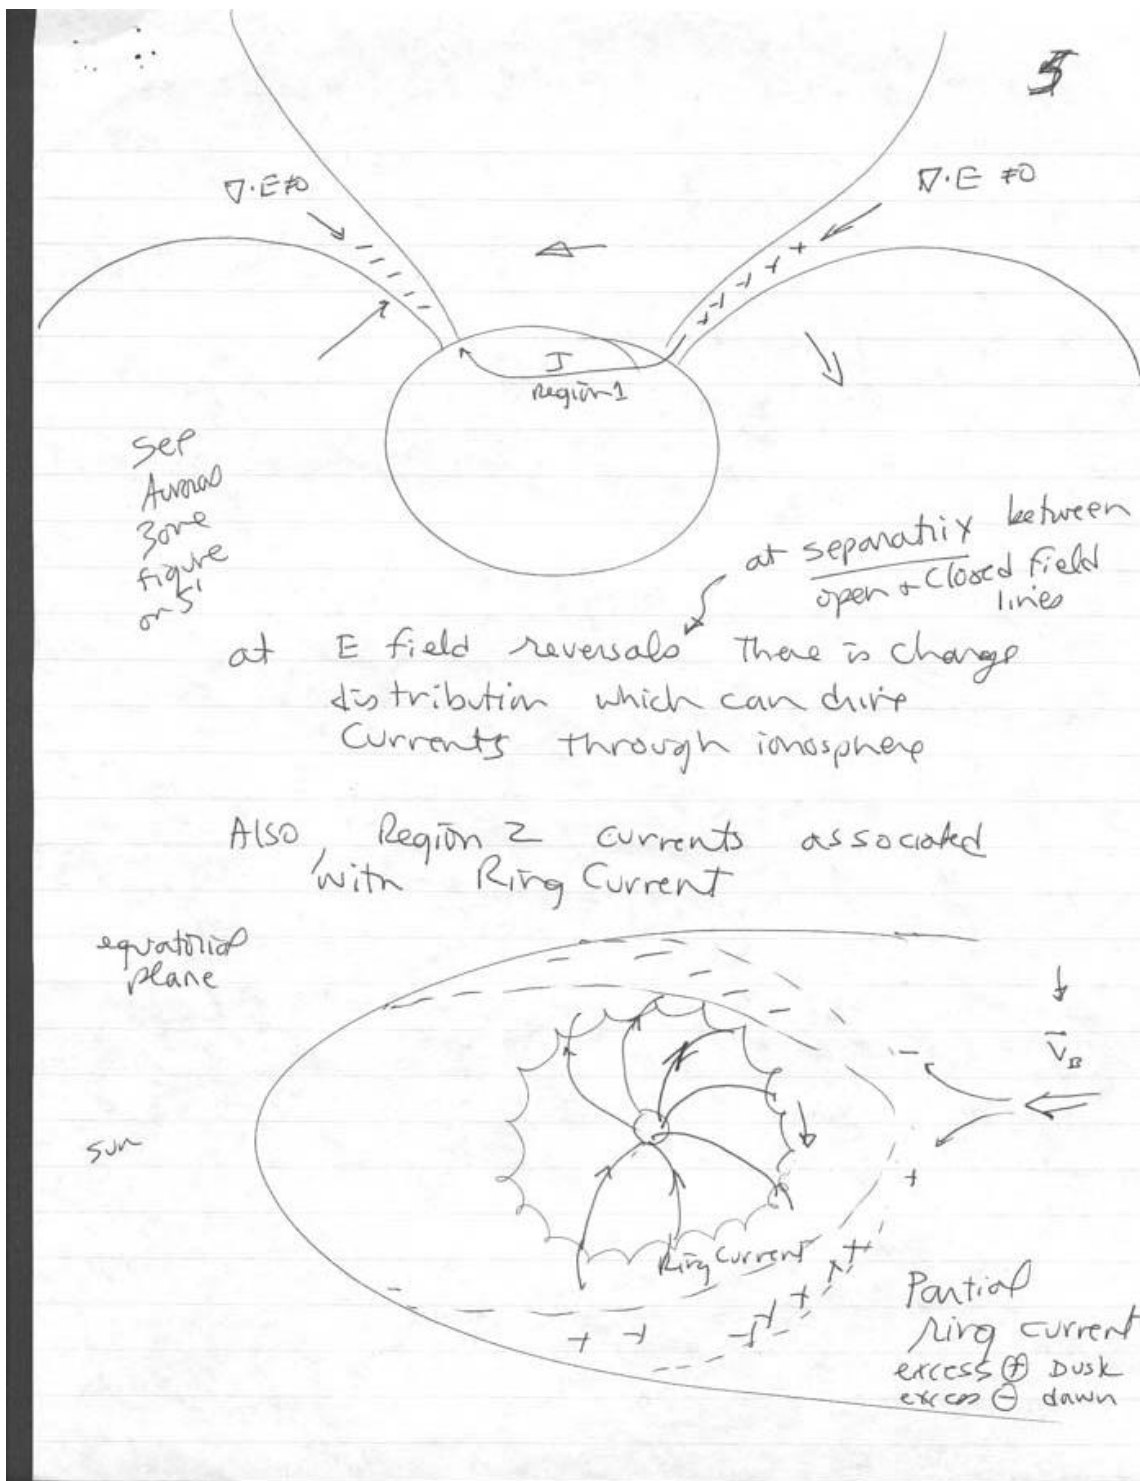 5
∇·E≠0
∇·E ≠0
J
Region 1
see
Auroral
zone
figure
on 5'
at separatrix between
open + closed field
lines
at E field reversals there is charge
distribution which can drive
currents through ionosphere
Also, Region 2 currents associated
with Ring Current
equatorial
plane
V_B
sun
Ring Current
Partial
ring current
excess ⊕ Dusk
excess ⊖ dawn